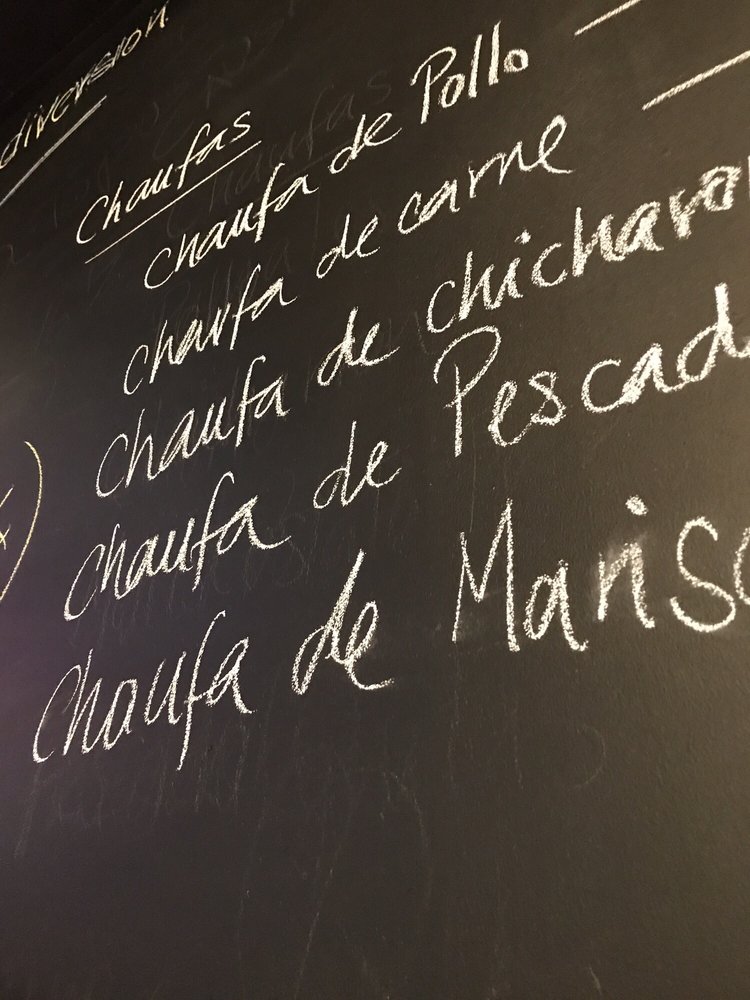 diversion
Chaufas
chaufa de Pollo
chaufa de carne
chaufa de chicharo
chaufa de Pescad
chaufa de Maris